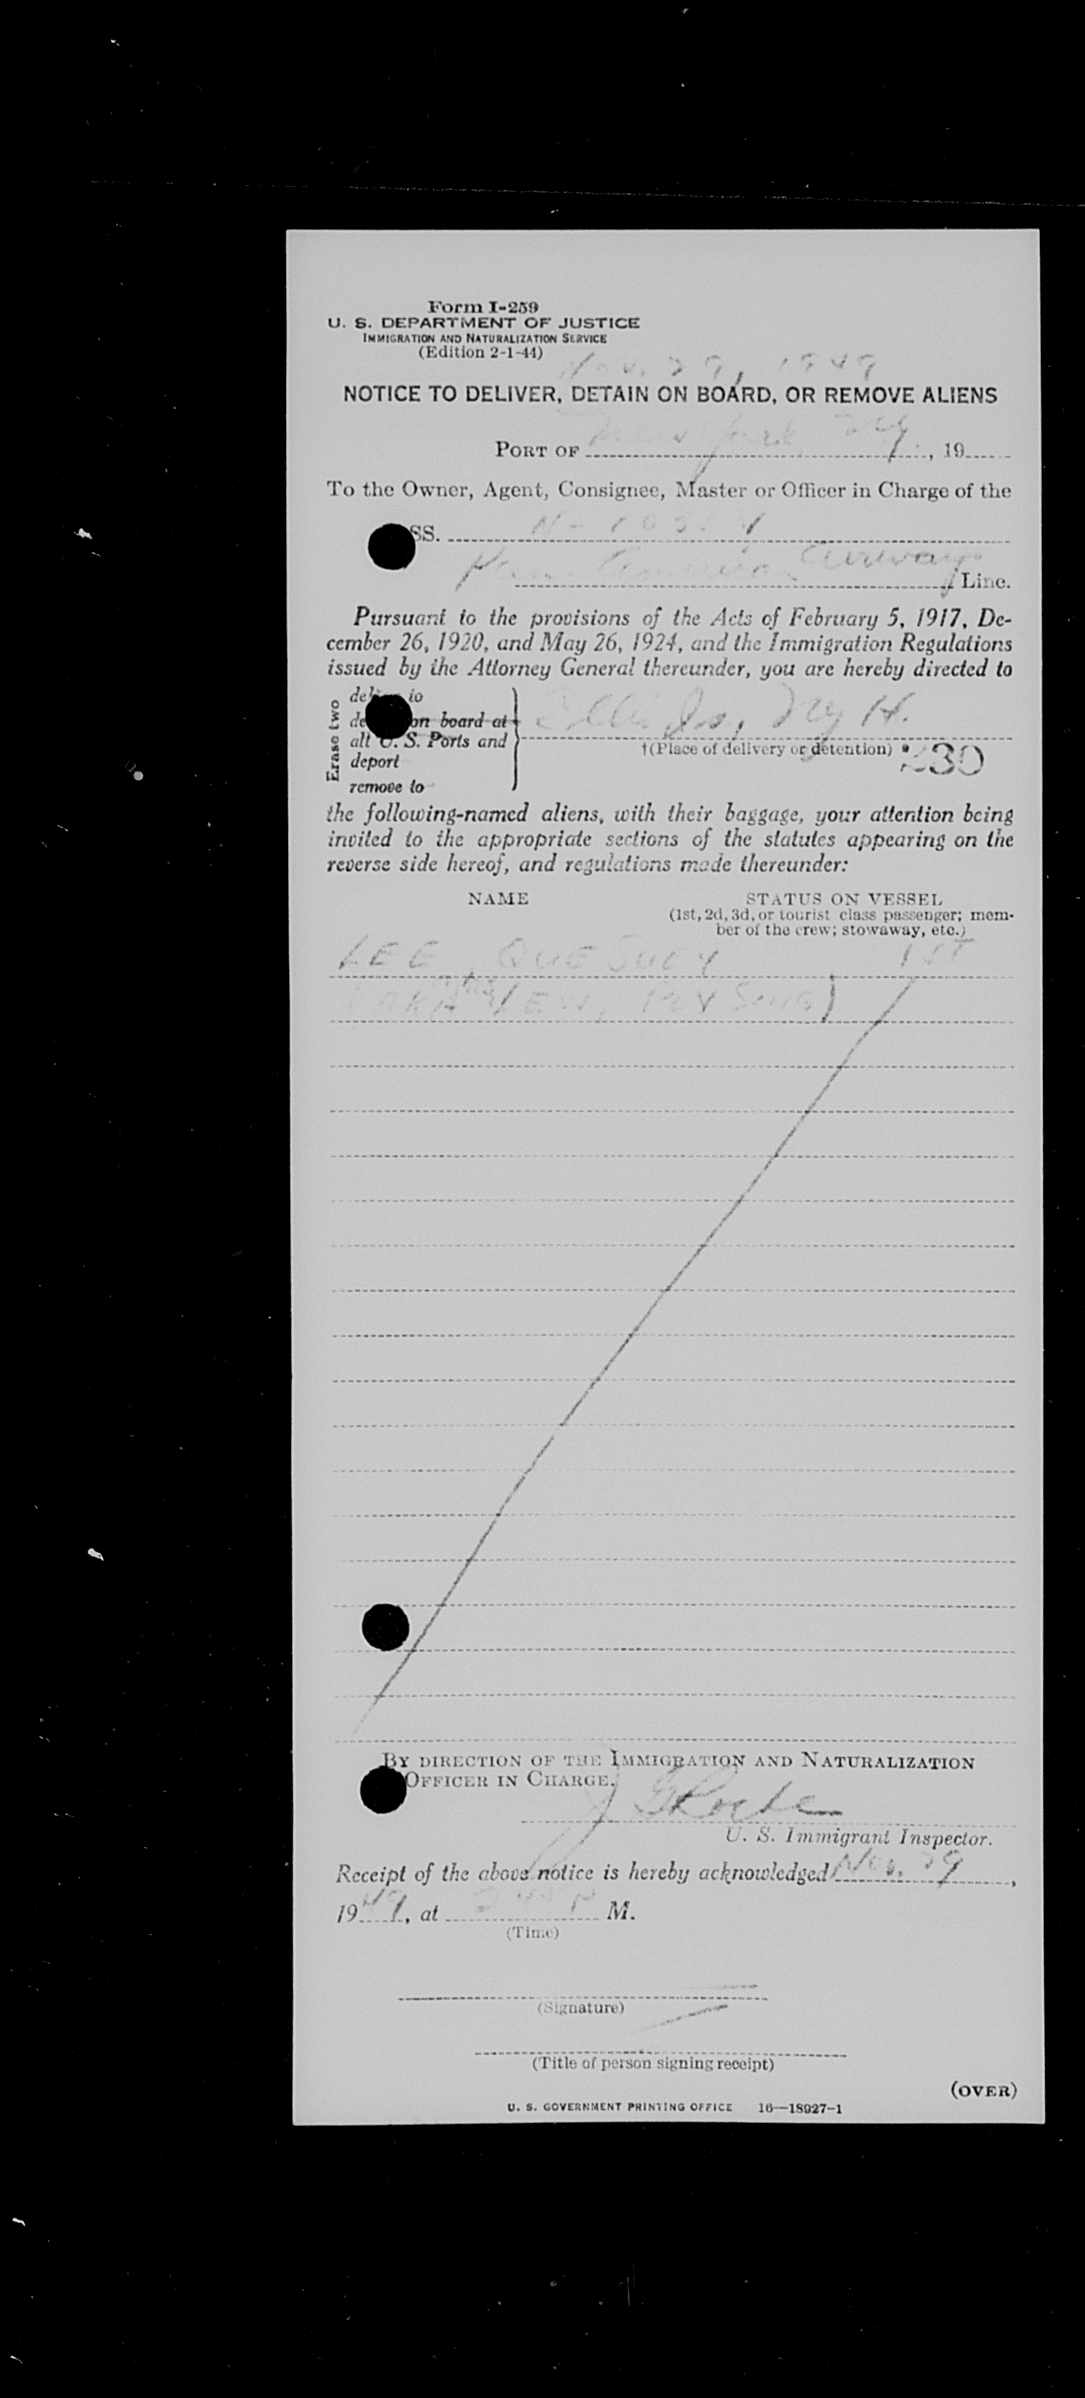 Form I-259
U. S. DEPARTMENT OF JUSTICE
IMMIGRATION AND NATURALIZATION SERVICE
(Edition 2-1-44)
Nov. 29, 1949
NOTICE TO DELIVER, DETAIN ON BOARD, OR REMOVE ALIENS
PORT OF New York, NY, 19
To the Owner, Agent, Consignee, Master or Officer in Charge of the
SS. N-
Pan American Airways Line.
Pursuant to the provisions of the Acts of February 5, 1917, De-
cember 26, 1920, and May 26, 1924, and the Immigration Regulations
issued by the Attorney General thereunder, you are hereby directed to
Erase two
deliver to
on board at
all U. S. Ports and
deport
remove to
Ellis Is, NYH.
†(Place of delivery or detention)
230
the following-named aliens, with their baggage, your attention being
invited to the appropriate sections of the statutes appearing on the
reverse side hereof, and regulations made thereunder:
NAME STATUS ON VESSEL
(1st, 2d, 3d, or tourist class passenger; mem-
ber of the crew; stowaway, etc.)
LEE, QUE 1ST
BY DIRECTION OF THE IMMIGRATION AND NATURALIZATION
OFFICER IN CHARGE.
U. S. Immigrant Inspector.
Receipt of the above notice is hereby acknowledged Nov. 29,
1949, at P M.
(Time)
(Signature)
(Title of person signing receipt)
(OVER)
U. S. GOVERNMENT PRINTING OFFICE 16—18927-1